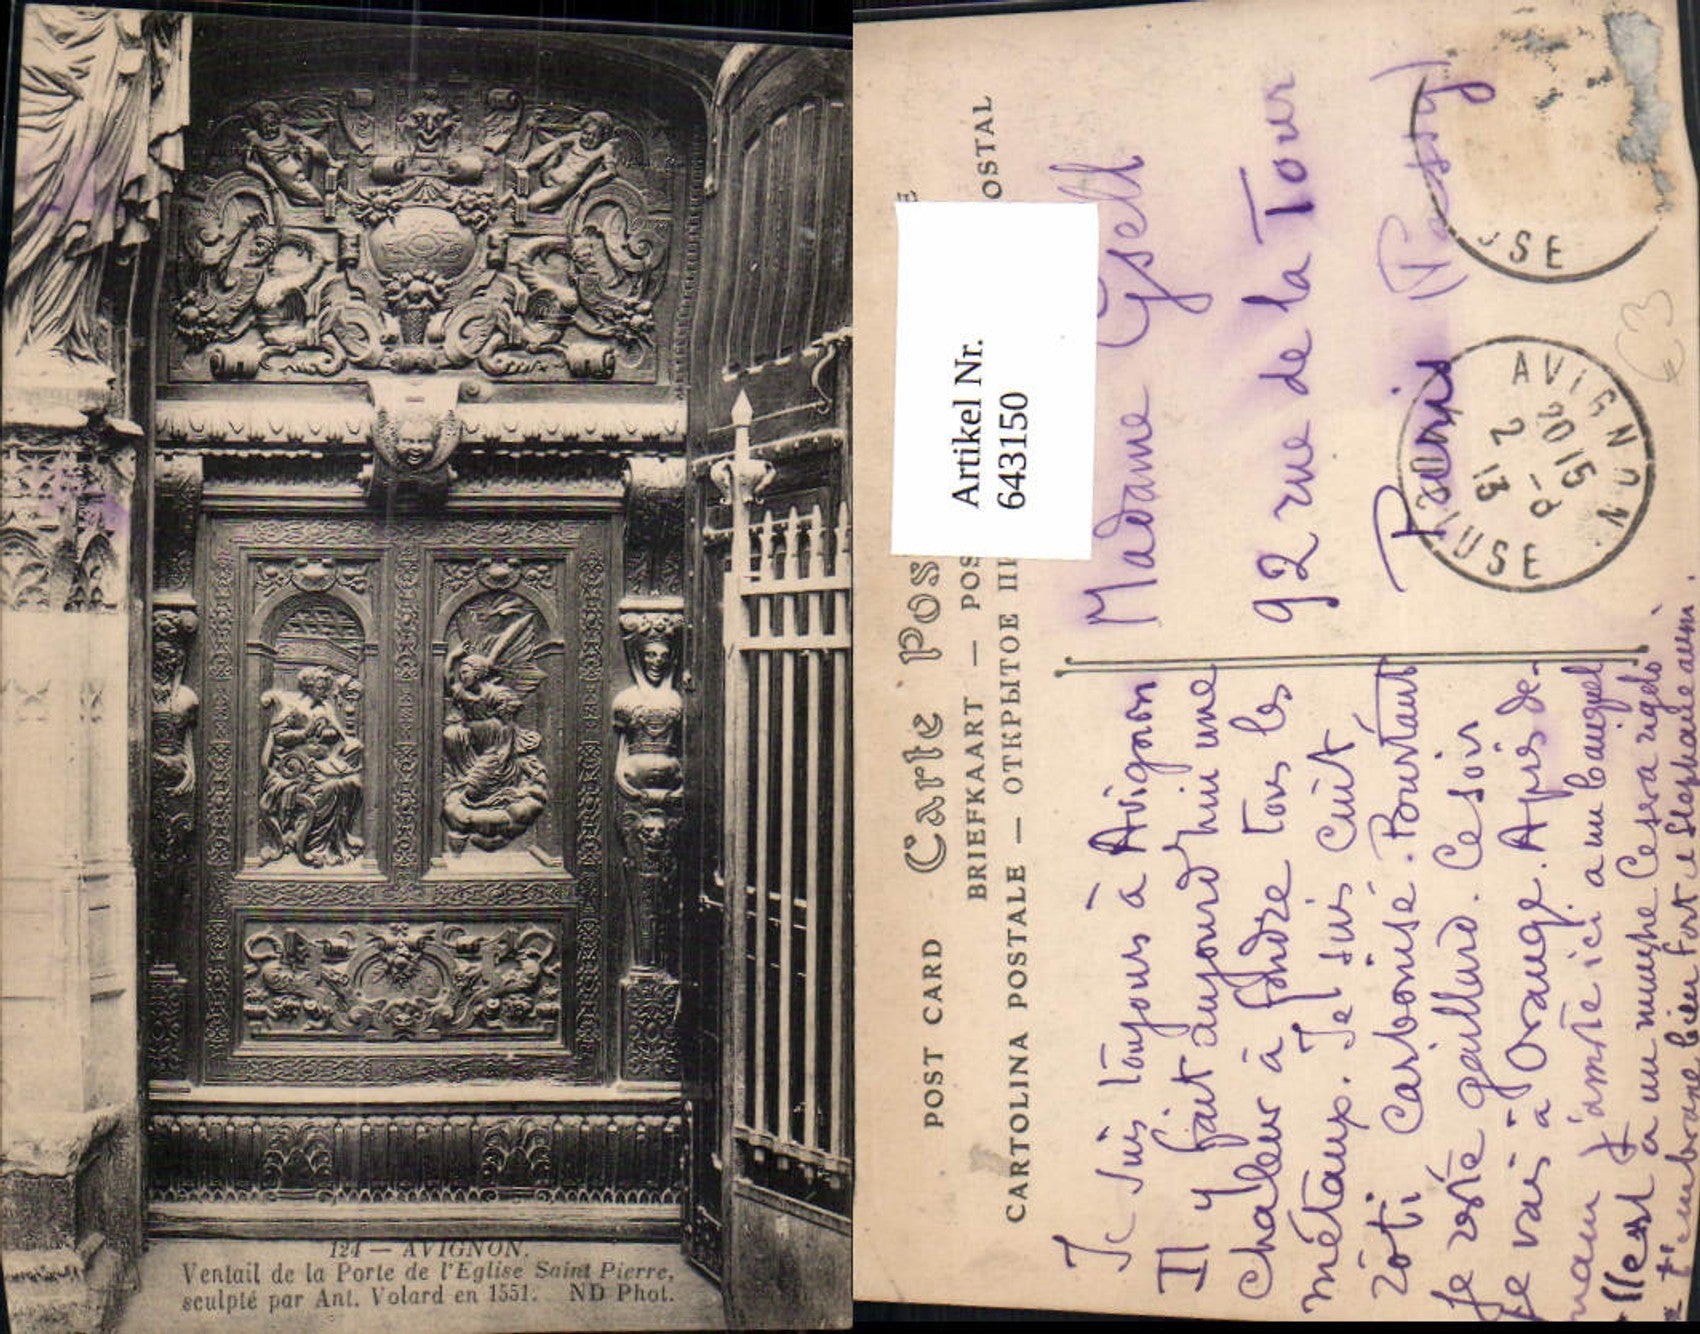 124 — AVIGNON.
Ventail de la Porte de l'Eglise Saint Pierre,
sculpté par Ant. Volard en 1551. ND Phot.
POST CARD Carte Pos
BRIEFKAART — POS
CARTOLINA POSTALE — ОТКРЫТОЕ ПІ OSTAL
Artikel Nr.
643150
Madame Gsell
92 rue de la Tour
Paris (Passy)
USE
AVIGNON
VAUCLUSE
2015
2 -8
13
€3
Je suis toujours à Avignon
Il y fait aujourd'hui une
chaleur à fondre tous les
métaux. Je suis cuit
rôti carbonisé. Pourtant
je reste gaillard. Ce soir
je vais à Orange. Après de-
main j'assiste ici à un banquet
Il est à un
embrasse bien fort